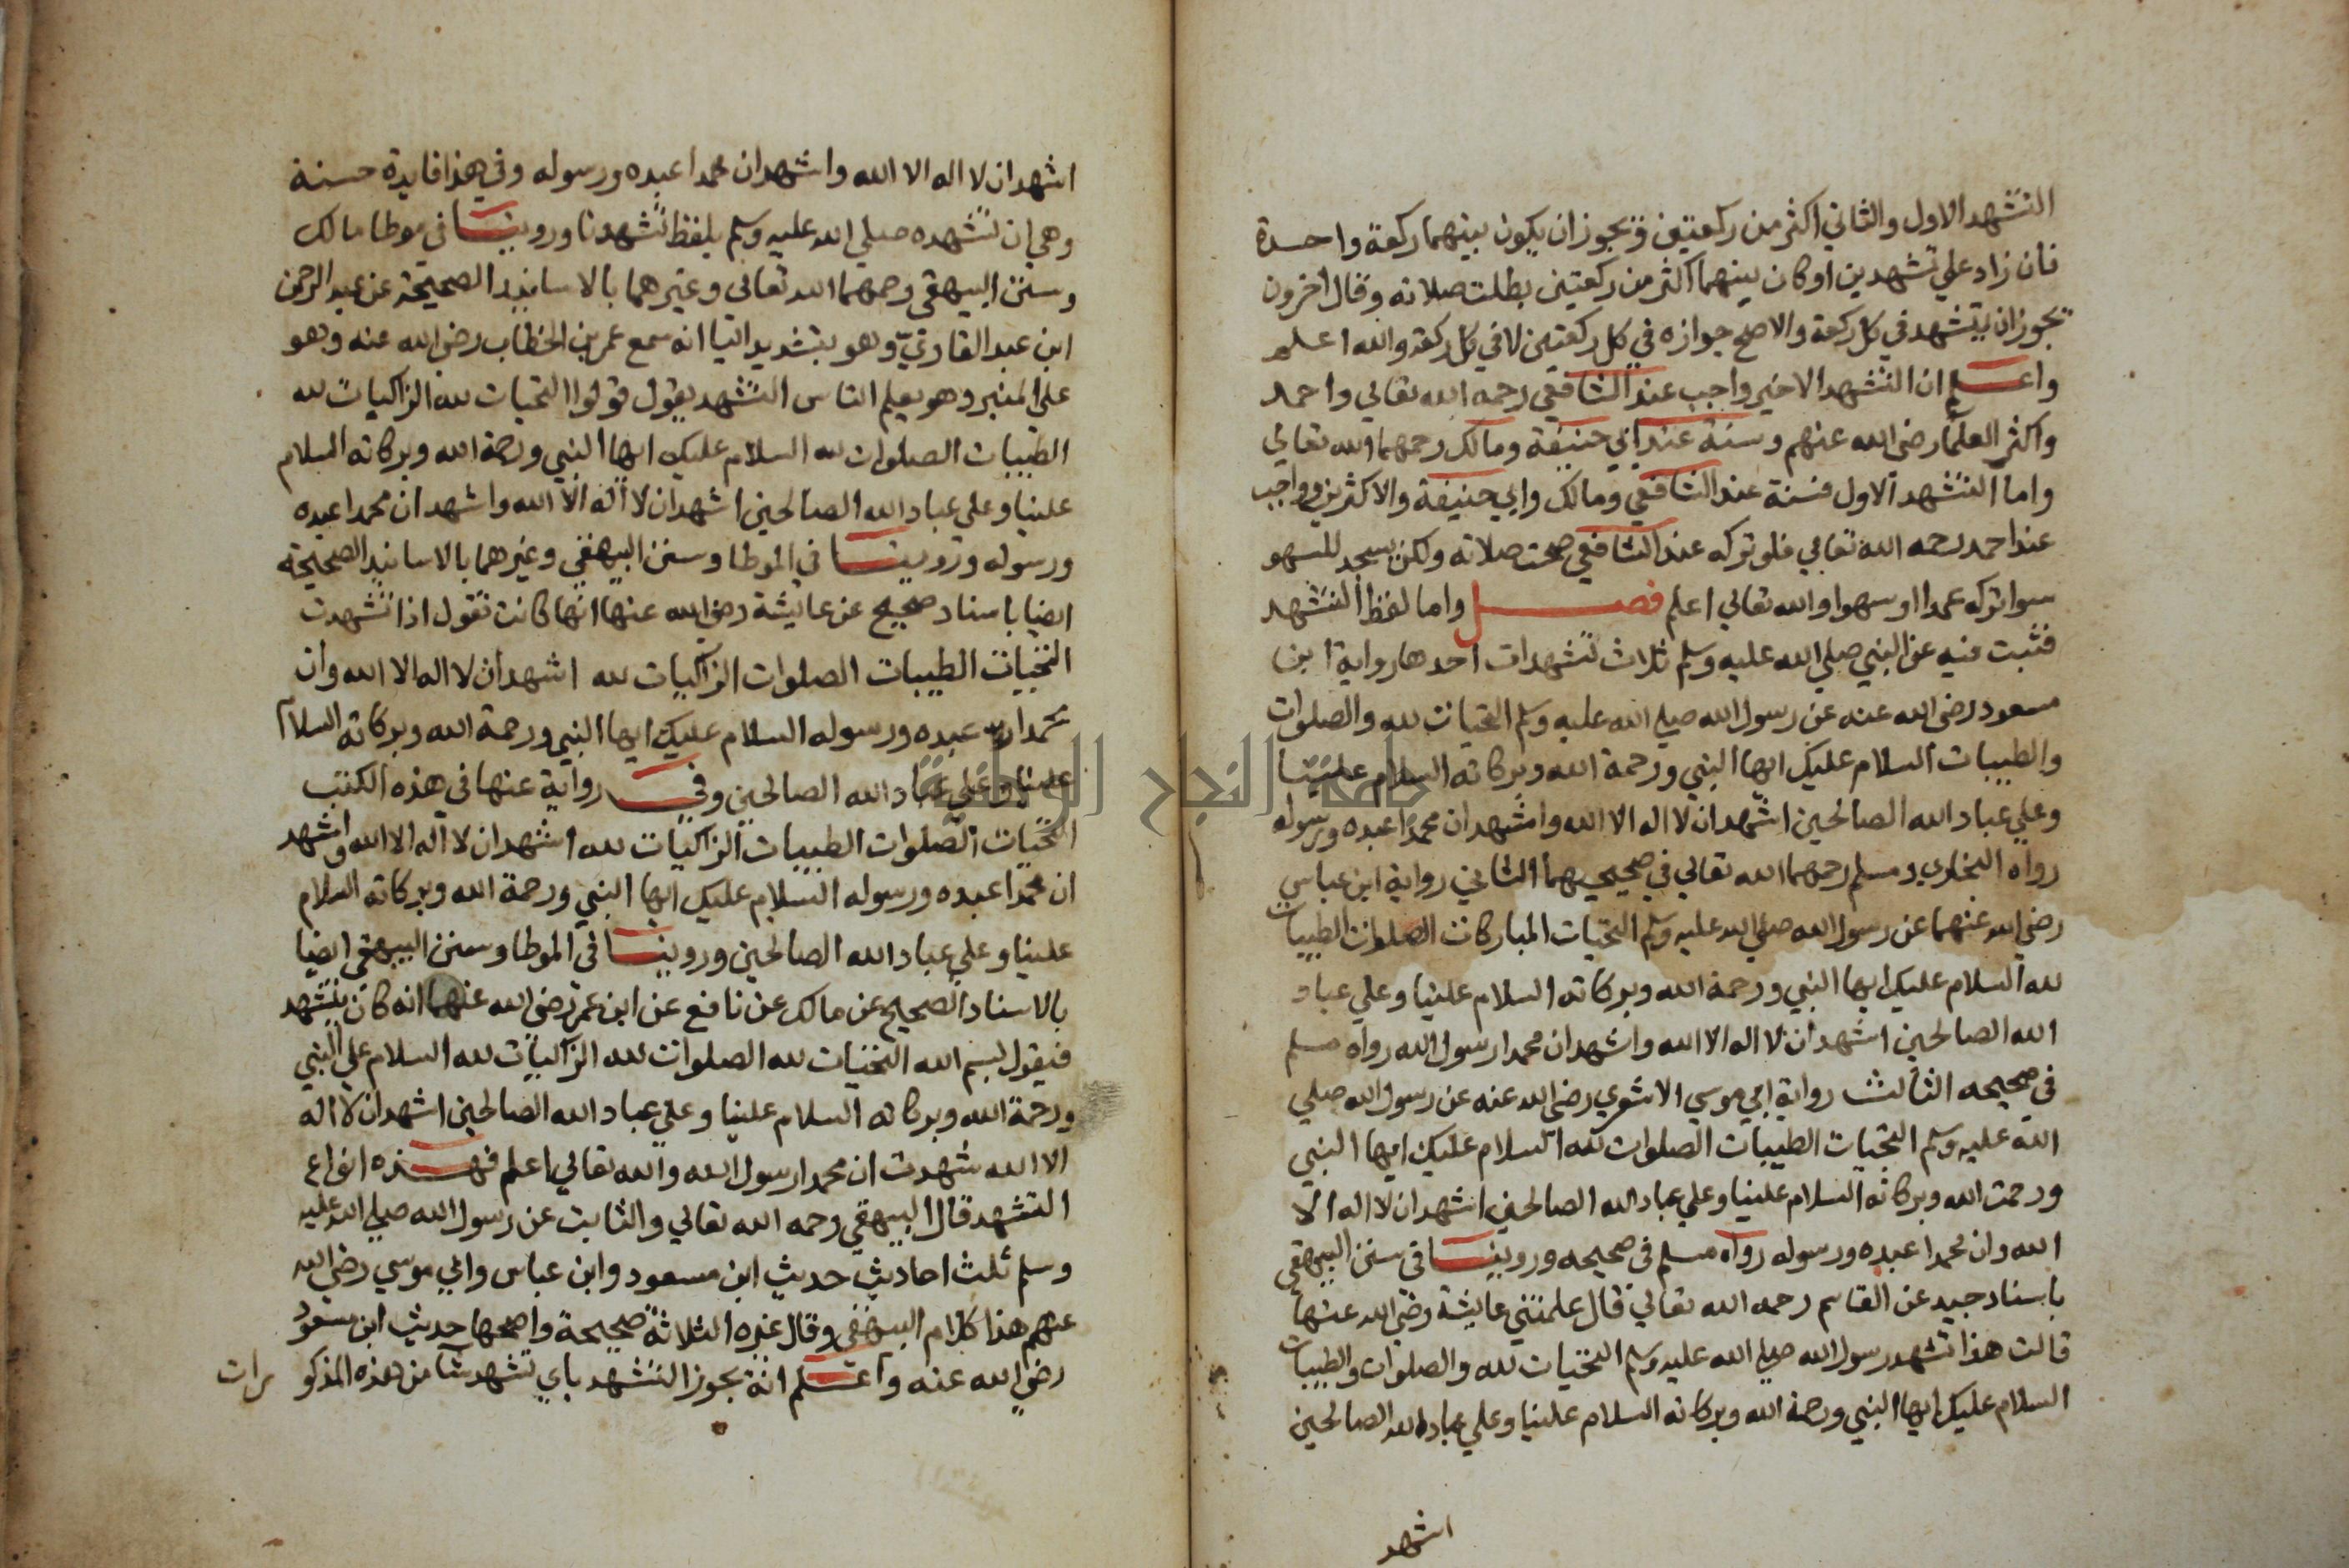 التشهد الاول والثاني اكثر من ركعتين ويجوز ان يكون بينهما ركعة واحدة
فان زاد علي تشهدين او كان بينهما اكثر من ركعتين بطلت صلاته وقال اخرون
يجوز ان يتشهد في كل ركعة والاصح جوازه في كل ركعتين لا في كل ركعة والله اعلم
واعلم ان التشهد الاخير واجب عند الشافعي رحمه الله تعالي واحمد
واكثر العلما رضي الله عنهم وسنة عند ابي حنيفة ومالك رحمهما الله تعالي
واما التشهد الاول فسنة عند الشافعي ومالك وابي حنيفة والاكثرين وواجب
عند احمد رحمه الله تعالي فلو تركه عند الشافعي صحت صلاته ولكن يسجد للسهو
سوا تركه عمدا او سهوا والله تعالي اعلم فصل واما لفظ التشهد
فثبت فيه عن النبي صلي الله عليه وسلم ثلاث تشهدات احدها رواية ابن
مسعود رضي الله عنه عن رسول الله صلي الله عليه وسلم التحيات لله والصلوات
والطيبات السلام عليك ايها النبي ورحمة الله وبركاته السلام علينا
وعلي عباد الله الصالحين اشهد ان لا اله الا الله واشهد ان محمدا عبده ورسوله
رواه البخاري ومسلم رحمهما الله تعالي في صحيحيهما الثاني رواية ابن عباس
رضي الله عنهما عن رسول الله صلي الله عليه وسلم التحيات المباركات الصلوات الطيبات
لله السلام عليك ايها النبي ورحمة الله وبركاته السلام علينا وعلي عباد
الله الصالحين اشهد ان لا اله الا الله واشهد ان محمدا رسول الله رواه مسلم
في صحيحه الثالث رواية ابي موسي الاشعري رضي الله عنه عن رسول الله صلي
الله عليه وسلم التحيات الطيبات الصلوات لله السلام عليك ايها النبي
ورحمت الله وبركاته السلام علينا وعلي عباد الله الصالحين اشهد ان لا اله الا
الله وان محمدا عبده ورسوله رواه مسلم في صحيحه وروينا في سنن البيهقي
باسناد جيد عن القاسم رحمه الله تعالي قال علمتني عايشة رضي الله عنها
قالت هذا تشهد رسول الله صلي الله عليه وسلم التحيات لله والصلوات والطيبات
السلام عليك ايها النبي ورحمة الله وبركاته السلام علينا وعلي عباد الله الصالحين
اشهد
اشهد ان لا اله الا الله واشهد ان محمدا عبده ورسوله وفي هذا فايدة حسنة
وهي ان تشهده صلي الله عليه وسلم بلفظ تشهدنا وروينا في موطا مالك
وسنن البيهقي رحمهما الله تعالي وغيرهما بالاسانيد الصحيحة عن عبد الرحمن
ابن عبد القاري وهو بتشديد اليا انه سمع عمر بن الخطاب رضي الله عنه وهو
علي المنبر وهو يعلم الناس التشهد يقول قولوا التحيات لله الزاكيات لله
الطيبات الصلوات لله السلام عليك ايها النبي ورحمة الله وبركاته السلام
علينا وعلي عباد الله الصالحين اشهد ان لا اله الا الله واشهد ان محمدا عبده
ورسوله وروينا في الموطا وسنن البيهقي وغيرهما بالاسانيد الصحيحة
ايضا باسناد صحيح عن عايشة رضي الله عنها انها كانت تقول اذا تشهدت
التحيات الطيبات الصلوات الزاكيات لله اشهد ان لا اله الا الله وان
محمدا عبده ورسوله السلام عليك ايها النبي ورحمة الله وبركاته السلام
علينا وعلي عباد الله الصالحين وفي رواية عنها في هذه الكتب
التحيات الصلوات الطيبات الزاكيات لله اشهد ان لا اله الا الله واشهد
ان محمدا عبده ورسوله السلام عليك ايها النبي ورحمة الله وبركاته السلام
علينا وعلي عباد الله الصالحين وروينا في الموطا وسنن البيهقي ايضا
بالاسناد الصحيح عن مالك عن نافع عن ابن عمر رضي الله عنهما انه كان يتشهد
فيقول بسم الله التحيات لله الصلوات لله الزاكيات لله السلام علي النبي
ورحمة الله وبركاته السلام علينا وعلي عباد الله الصالحين اشهد ان لا اله
الا الله شهدت ان محمدا رسول الله والله تعالي اعلم فهذه انواع
التشهد قال البيهقي رحمه الله تعالي والثابت عن رسول الله صلي الله عليه
وسلم ثلث احاديث حديث ابن مسعود وابن عباس وابي موسي رضي الله
عنهم هذا كلام البيهقي وقال غيره الثلاثة صحيحة واصحها حديث ابن مسعود
رضي الله عنه واعلم انه يجوز التشهد باي تشهد شا من هذه المذكو رات
جامعة النجاح الوطنية